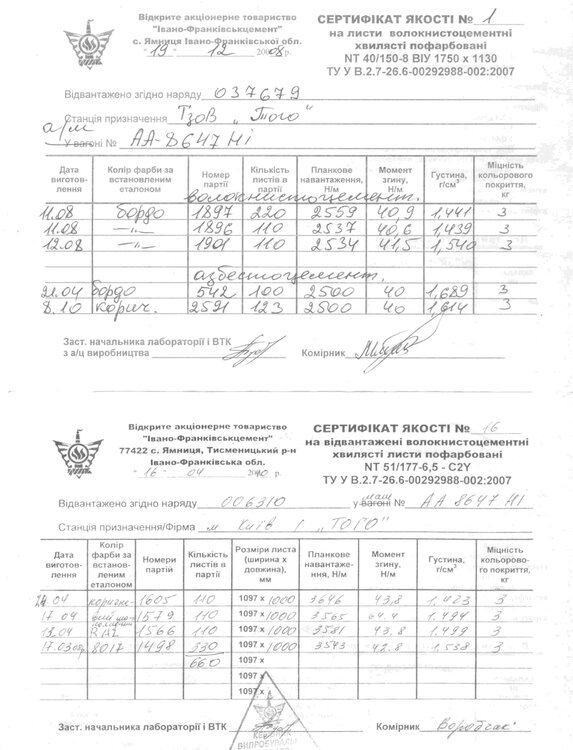 Відкрите акціонерне товариство
"Івано-Франківськцемент"
с. Ямниця Івано-Франківської обл.
"19" 12 2008 р.
СЕРТИФІКАТ ЯКОСТІ № 1
на листи волокнистоцементні
хвилясті пофарбовані
NT 40/150-8 ВІУ 1750 x 1130
ТУ У В.2.7-26.6-00292988-002:2007
Відвантажено згідно наряду 037679
Станція призначення ТзОВ „Того"
а/м
У вагоні № АА-8647НІ
Дата виготов-лення Колір фарби за встановленим еталоном Номер партії Кількість листів в партії Планкове навантаження, Н/м Момент згину, Н/м Густина, г/см³ Міцність кольорового покриття, кг
волокнистоцемент.
11.08 бордо 1897 220 2559 40,9 1,441 3
11.08 —„— 1896 110 2537 40,6 1,439 3
12.08 —„— 1901 110 2534 41,5 1,540 3
азбестоцемент.
21.04 бордо 542 100 2500 40 1,689 3
8.10 корич. 2591 123 2500 40 1,614 3
Заст. начальника лабораторії і ВТК
з а/ц виробництва
Комірник
Відкрите акціонерне товариство
"Івано-Франківськцемент"
77422 с. Ямниця, Тисменицький р-н
Івано-Франківська обл.
"16" 04 2010 р.
СЕРТИФІКАТ ЯКОСТІ № 16
на відвантажені волокнистоцементні
хвилясті листи пофарбовані
NT 51/177-6,5 - C2Y
ТУ У В.2.7-26.6-00292988-002:2007
Відвантажено згідно наряду 006310
маш
у вагоні № АА 8647 НІ
Станція призначення/Фірма м Київ / „ТОГО"
Дата виготов-лення Колір фарби за встанов-леним еталоном Номери партій Кількість листів в партії Розміри листа (ширина x довжина), мм Планкове навантаже-ння, Н/м Момент згину, Н/м Густина, г/см³ Міцність кольорово-го покриття, кг
04 коричне- 1605 110 1097 x 1000 3646 43,8 1,423 3
17 04 1579 110 1097 x 1000 3565 44.4 1,494 3
13.04 RAL 1566 110 1097 x 1000 3581 43.8 1,499 3
17.03 8017 1498 330 1097 x 1000 3543 42.8 1,538 3
660 1097 x
1097 x
1097 x
Заст. начальника лабораторії і ВТК
Комірник Воробчак